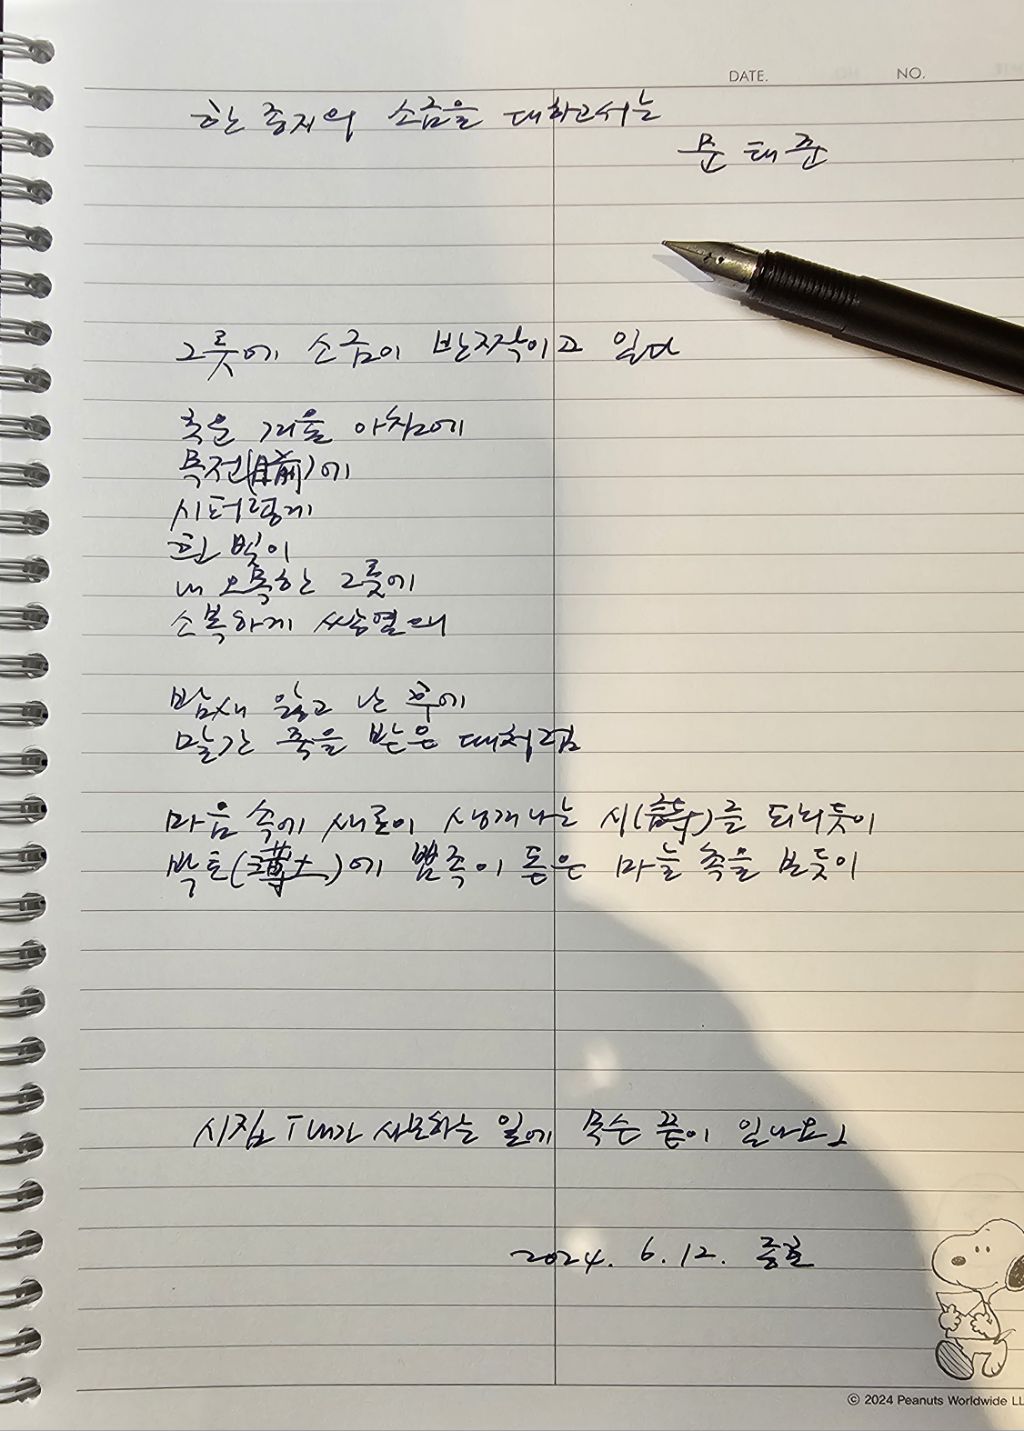 DATE. NO.
한 종지의 소금을 대하고서는
문태준
그릇에 소금이 반짝이고 있다
추운 겨울 아침에
목전(目前)에
시퍼렇게
흰 빛이
내 오목한 그릇에
소복하게 쌓였으니
밤새 앓고 난 후에
말간 죽을 받은 때처럼
마음 속에 새로이 생겨나는 시(詩)를 되뇌듯이
박토(薄土)에 뾰족이 돋은 마늘 촉을 보듯이
시집 「내가 사모하는 일에 무슨 끝이 있나요」
2024. 6. 12.
© 2024 Peanuts Worldwide LL